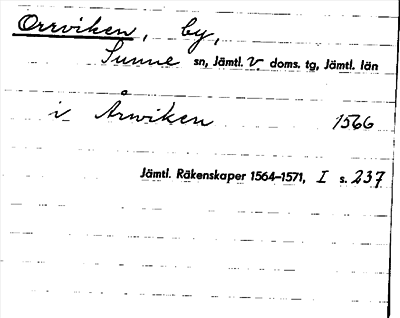 Orrviken, by,
Sunne sn, Jämtl. V. doms. tg, Jämtl. län
i Årwiken 1566
Jämtl. Räkenskaper 1564–1571, I s. 237